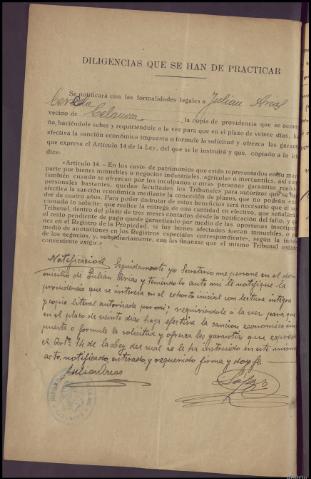 DILIGENCIAS QUE SE HAN DE PRACTICAR
Se notificará con las formalidades legales a Julian Arias
vecino de la copia de providencia que se acom-
haciéndole saber y requiriéndole a la vez para que en el plazo de veinte días, haga
efectiva la sanción económica impuesta o formule la solicitud y ofrezca las garantías
que expresa el Artículo 14 de la Ley, del que se le instruirá y que, copiado a la letra
dice:
«Artículo 14.—En los casos de patrimonios que estén representados en su mayor
parte por bienes inmuebles o negocios industriales, agrícolas o mercantiles, así como
también cuando se ofrezcan por los inculpados u otras personas garantías reales o
personales bastantes, quedan facultados los Tribunales para autorizar que se haga
efectiva la sanción económica mediante la concesión de plazos, que no podrá exce-
der de cuatro años. Para poder disfrutar de estos beneficios será necesario que el san-
cionado lo solicite, que realice la entrega de una cantidad en efectivo, que señalará el
Tribunal, dentro del plazo de tres meses contados desde la notificación del fallo, y que
el resto pendiente de pago quede garantizado por medio de las oportunas inscripcio-
nes en el Registro de la Propiedad, si los bienes afectados fueren inmuebles, o por
medio de anotaciones en los Registros especiales correspondientes, según la índole
de los negocios, y, subsidiariamente, con las fianzas que el mismo Tribunal estime
conveniente exigir.»
Notificación.) Seguidamente yo Secretario me persone en el do-
micilio de Julian Arias y teniendolo ante mi le notifique la
providencia que se inserta en el exhorto inicial con lectura integra
y copia literal autorizada por mi, requiriendole a la vez para que
en el plazo de veinte dias haga efectiva la sancion economica im-
puesta o formule la solicitud y ofrezca las garantias que expresa
el Artº 14 de la Ley del cual es le fue instruido en este mismo
acto, notificado, enterado y requerido firma y doy fe.
Julian Arias